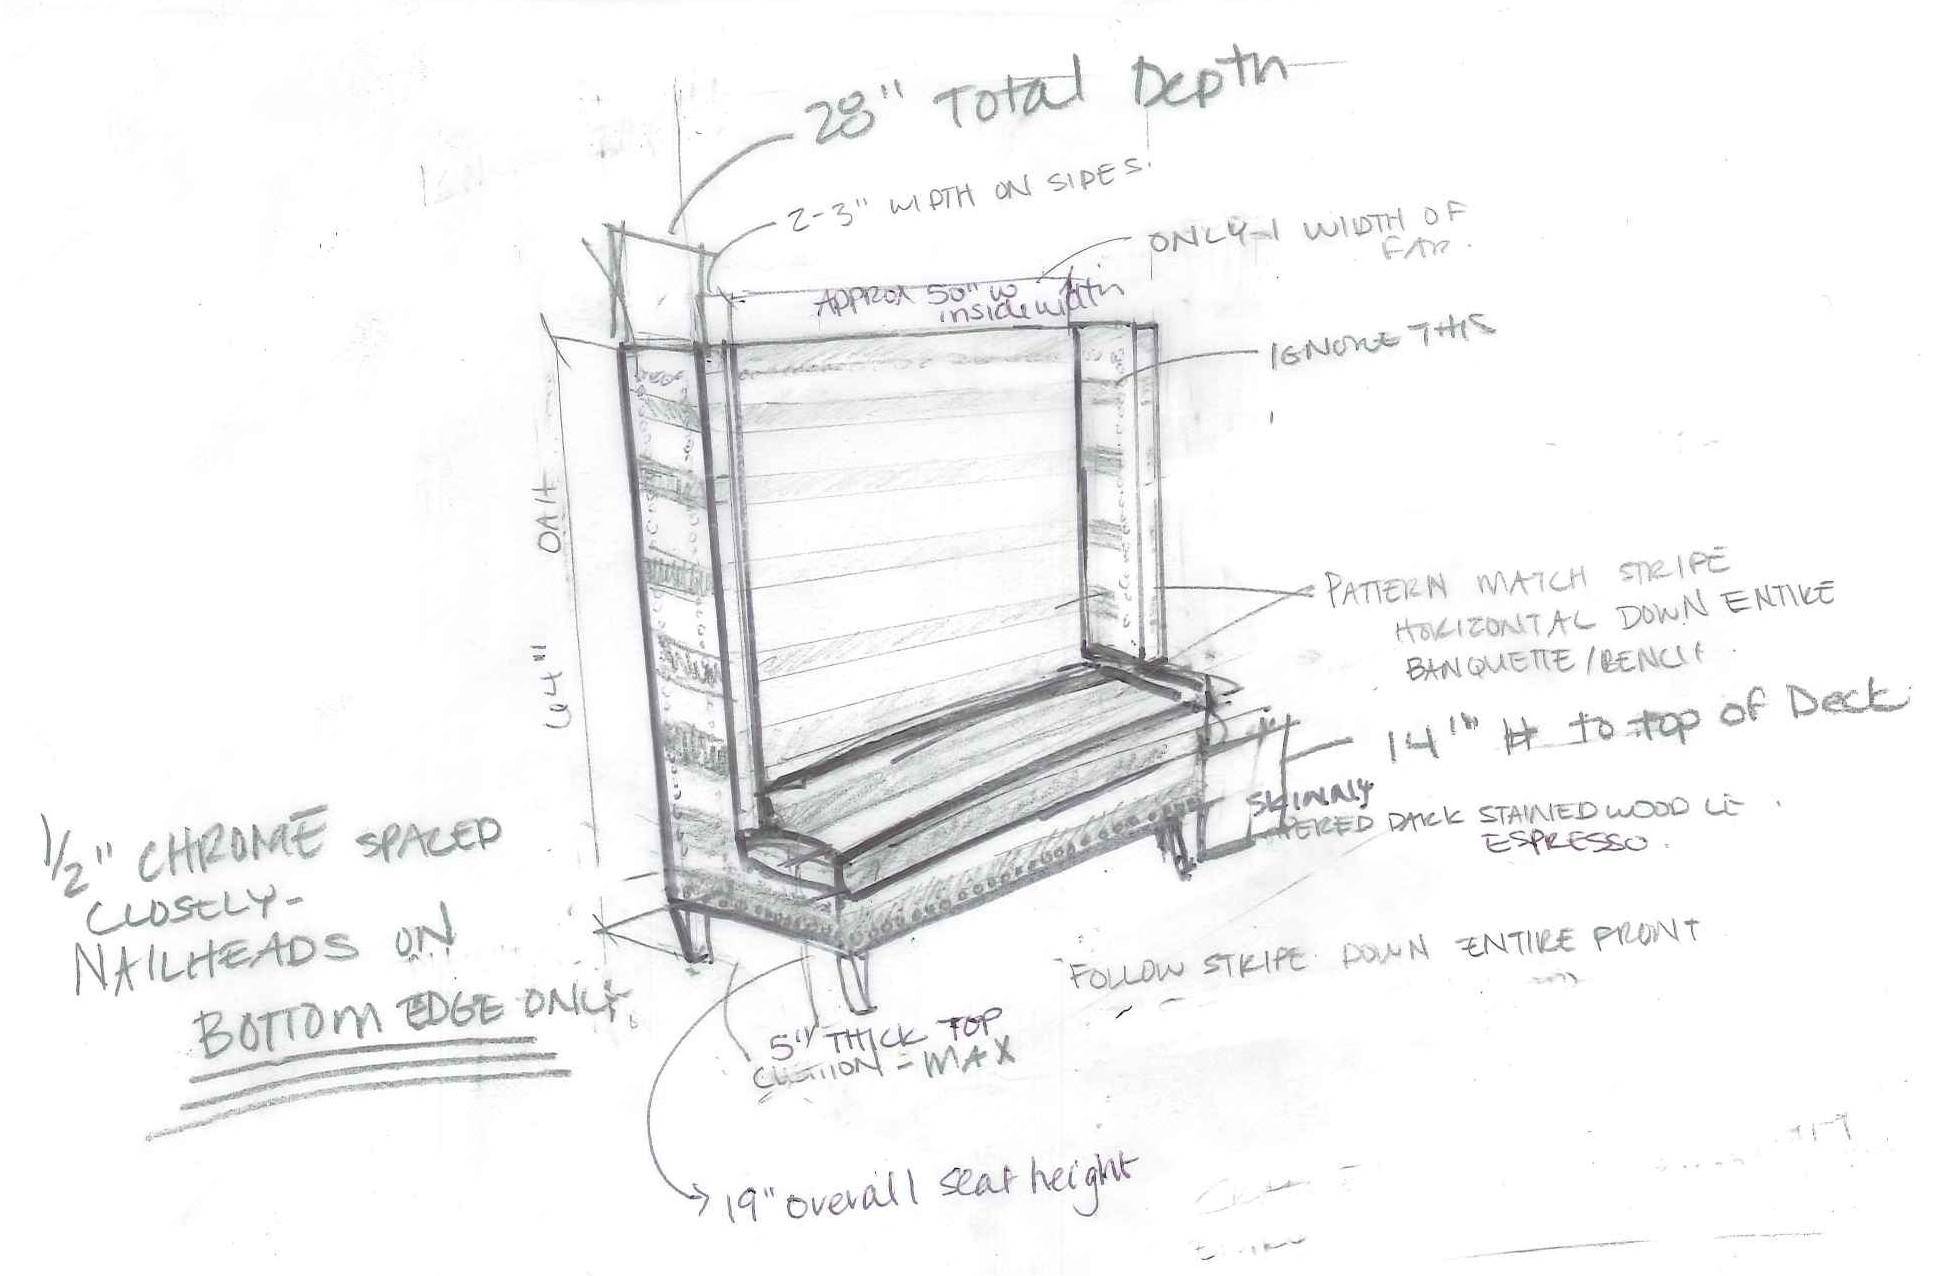 28" Total Depth
2-3" WIDTH ON SIDES.
ONLY 1 WIDTH OF
APPROX 50" W
inside width
IGNORE THIS
OAH
64"
PATTERN MATCH STRIPE
HORIZONTAL DOWN ENTIRE
BANQUETTE/BENCH
14" H to top of Deck
SKINNY
DARK STAINED WOOD
ESPRESSO.
1/2" CHROME SPACED
CLOSELY-
NAILHEADS ON
BOTTOM EDGE ONLY
FOLLOW STRIPE DOWN ENTIRE FRONT
5" THICK TOP
CUSHION = MAX
19" overall seat height